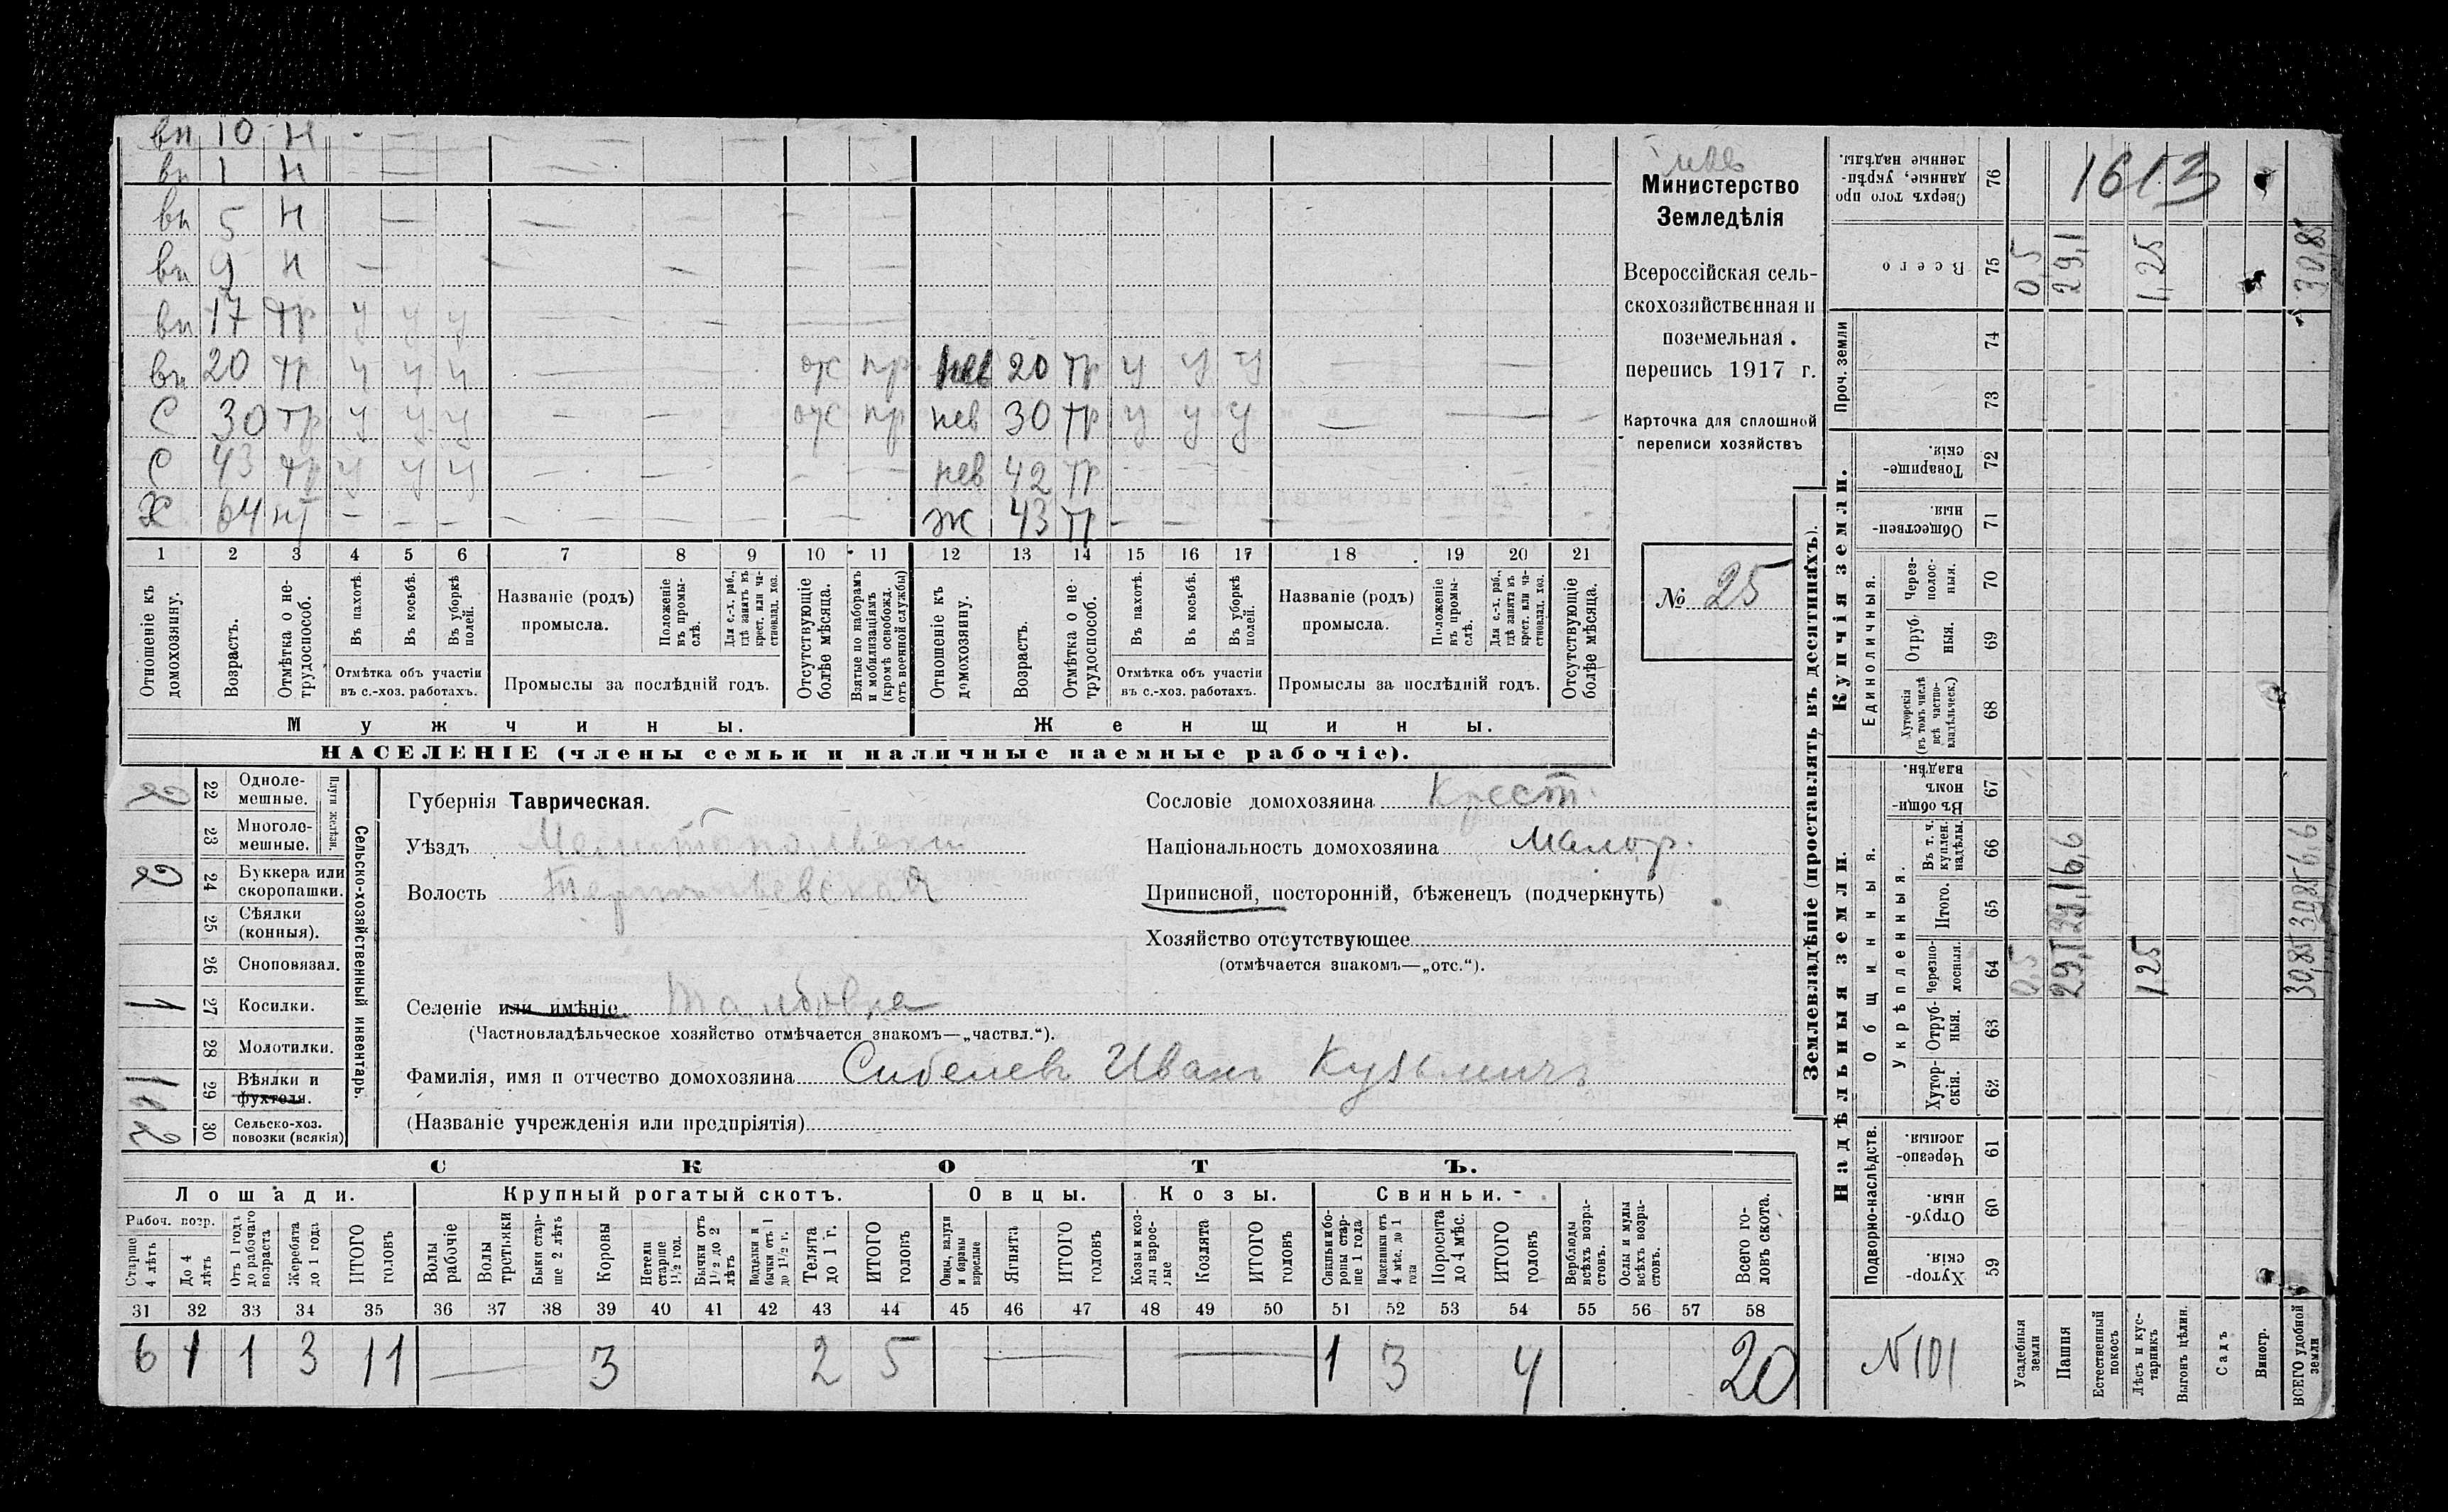 вн 10 н - —
вн 1 н — — — — —
вн 5 н — — — —
вн 9 н — — — — —
вн 17 тр у у у — — — —
вн 20 тр у у у — — — от пр нев 20 тр у у у — —
С 30 тр у у у — — от пр нев 30 тр у у у — — —
С 43 тр у у у — — — — нев 42 тр — —
Х 64 нт — — — — — — — — ж 43 тр — — — — —
1 2 3 4 5 6 7 8 9 10 11 12 13 14 15 16 17 18 19 20 21
Отношеніе къ домохозяину.
Возрастъ.
Отмѣтка о не-трудоспособ.
Въ пахотѣ.
Въ косьбѣ.
Въ уборкѣ полей.
Отмѣтка объ участіи
въ с.-хоз. работахъ.
Названіе (родъ)
промысла.
Положеніе въ промы-слѣ.
Для с.-х. раб., гдѣ занятъ въ крест. или ча-стновлад. хоз.
Промыслы за послѣдній годъ.
Отсутствующіе болѣе мѣсяца.
Взятые по наборамъ и мобилизаціямъ (кромѣ освобожд. отъ военной службы)
Отношеніе къ домохозяину.
Возрастъ.
Отмѣтка о не-трудоспособ.
Въ пахотѣ.
Въ косьбѣ.
Въ уборкѣ полей.
Отмѣтка объ участіи
въ с.-хоз. работахъ.
Названіе (родъ)
промысла.
Положеніе въ промы-слѣ.
Для с.-х. раб., гдѣ занята въ крест. или ча-стновлад. хоз.
Промыслы за послѣдній годъ.
Отсутствующіе болѣе мѣсяца.
Мужчины. Женщины.
НАСЕЛЕНІЕ (члены семьи и наличные наемные рабочіе).
Министерство
Земледѣлія
Всероссійская сель-
скохозяйственная и
поземельная
перепись 1917 г.
Карточка для сплошной
переписи хозяйствъ
№ 25
2 22 Одноле-мешные.
23 Многоле-мешные.
Плуги желѣзн.
2 24 Буккера или скоропашки.
25 Сѣялки (конныя).
26 Сноповязал.
1 27 Косилки.
28 Молотилки.
1 29 Вѣялки и фухтеля.
2 30 Сельско-хоз. повозки (всякія)
Сельско-хозяйственный инвентарь.
Губернія Таврическая.
Уѣздъ Мелитопольскій
Волость
Селеніе или имѣніе.
(Частновладѣльческое хозяйство отмѣчается знакомъ—„частвл.“).
Фамилія, имя и отчество домохозяина Сибелевъ Иванъ Кузьмичъ
(Названіе учрежденія или предпріятія)
Сословіе домохозяина Крест.
Національность домохозяина Малор.
Приписной, посторонній, бѣженецъ (подчеркнуть)
Хозяйство отсутствующее
(отмѣчается знакомъ—„отс.“).
СКОТЪ.
Лошади. Крупный рогатый скотъ. Овцы. Козы. Свиньи.
Рабоч. возр.
Старше 4 лѣтъ
До 4 лѣтъ
Отъ 1 года до рабочаго возраста
Жеребята до 1 года
ИТОГО головъ
Волы рабочіе
Волы третьяки
Быки стар-ше 2 лѣтъ
Коровы
Нетели старше 1½ год.
Бычки отъ 1½ до 2 лѣтъ
Подтелки и бычки отъ 1 до 1½ г.
Телята до 1 г.
ИТОГО головъ
Овцы, валухи и бараны взрослые
Ягнята
ИТОГО головъ
Козы и коз-лы взрос-лые
Козлята
ИТОГО головъ
Свиньи и бо-ровы стар-ше 1 года
Подсвинки отъ 4 мѣс. до 1 года
Поросята до 4 мѣс.
ИТОГО головъ
Верблюды всѣхъ возра-стовъ.
Ослы и мулы всѣхъ возра-стовъ.
Всего го-ловъ скота.
31 32 33 34 35 36 37 38 39 40 41 42 43 44 45 46 47 48 49 50 51 52 53 54 55 56 57 58
6 1 1 3 11 — 3 2 5 — — 1 3 4 20
Землевладѣніе (проставлять въ десятинахъ).
Надѣльныя земли. Купчія земли.
Проч. земли
Общинныя.
Укрѣпленныя.
Подворно-наслѣдств.
Единоличныя.
Сверхъ того про данные, укрѣп-ленные надѣлы. 76 1613
Всего 75 0,5 29,1 1,25 30,85
74
73
Товарище-скія. 72
Обществен-ныя. 71
Через-полос-ныя. 70
Отруб-ныя. 69
Хуторскія (въ томъ числѣ всѣ частно-владѣльческ.) 68
Въ общин-номъ владѣн. 67
Въ т. ч. куплен. надѣлы. 66 6,6
Итого. 65 30,85
Черезпо-лосныя. 64 0,5 29,1 1,25 30,85
Отруб-ныя. 63
Хутор-скія. 62
Черезпо-лосныя. 61
Отруб-ныя. 60
Хутор-скія. 59
N 101
Усадебныя земли
Пашня
Естественный покосъ
Лѣсъ и кус-тарникъ
Выгонъ цѣлин.
Садъ
Виногр.
ВСЕГО удобной земли